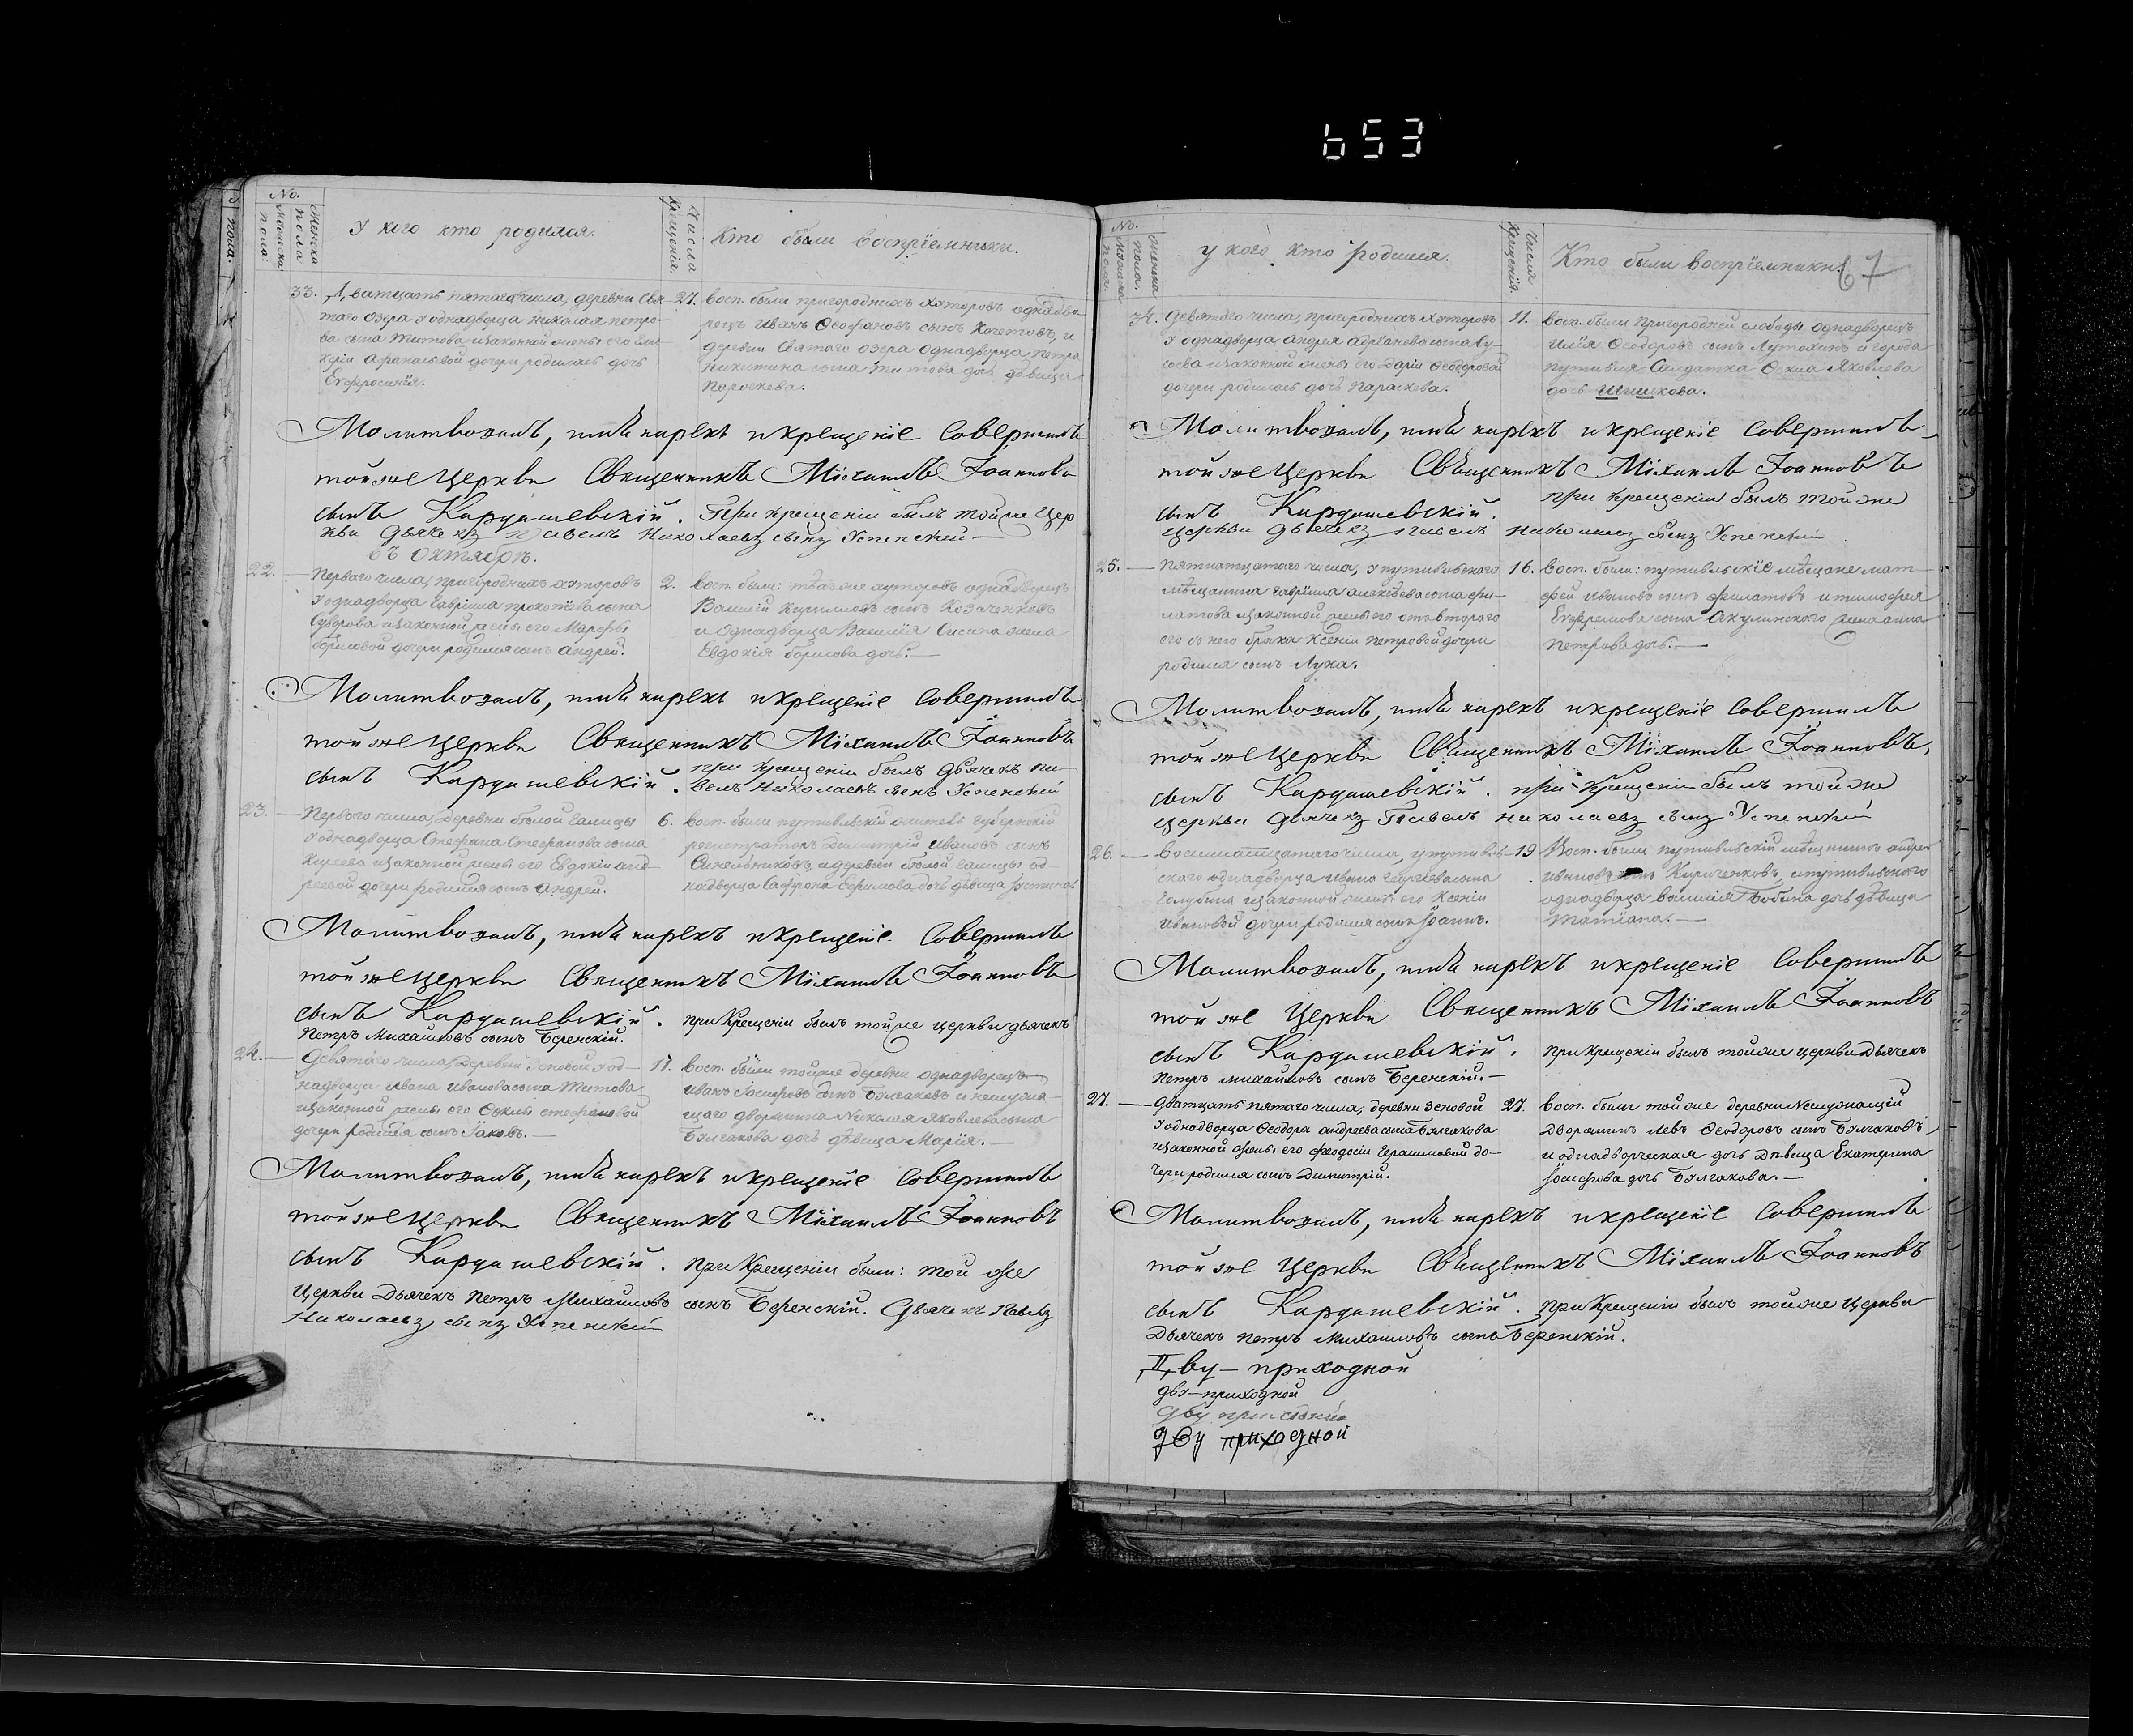 653
No.
Женска пола
Мужска пола.
У кого кто родился.
Числа крещенія.
Кто были воспріемники.
33. Дватцать пятаго числа, деревни Свя-
таго озера у однадворца Николая Петро-
ва сына Титова изаконной жены его
Афанасьевой дочери родилась дочь
Евфросинія.
27. Восп. были пригородныхъ хуторовъ однадво-
рецъ Иванъ Феофановъ сынъ Кочетовъ, и
деревни Святаго озера однадворца Петра
Никитина сына Титова дочь дѣвица
Параскева.
Молитвовалъ, имя нарекъ икрещеніе совершилъ
тойже Церкви Священникъ Міхаилъ Іоанновъ
сынъ Кардашевскій. При крещеніи былъ тойже Цер
кви Дьячекъ Павелъ Николаевъ сынъ Успенскій
въ Октябрѣ.
22. Перваго числа, пригородныхъ хуторовъ
у однадворца Гавріила Прокопіева сына
Суворова изаконной жены его Марфы
Борисовой дочери родился сынъ Андрей.
2. Восп. были: техже хуторовъ однадворецъ
Василій Кириловъ сынъ Козаченковъ
и однадворца Василія Сисина жена
Евдокія Борисова дочь.
Молитвовалъ, имя нарекъ икрещеніе совершилъ
тойже Церкви Священникъ Міхаилъ Іоанновъ
сынъ Кардашевскій. при крещеніи былъ Дьячекъ Па-
велъ Николаевъ сынъ Успенскій
23. Перваго числа, Деревни бѣлой Галицы
у однадворца Стефана Стефанова сына
Киреева изаконной жены его Евдокіи Анд-
реевой дочери родился сынъ Андрей.
6. Восп. были путивльскій житель Губернскій
регистраторъ Димитрій Ивановъ сынъ
Синельниковъ, идеревни бѣлой Галицы од-
надворца Сафрона Ефимова дочь дѣвица
Молитвовалъ, имя нарекъ икрещеніе совершилъ
тойже Церкви Священникъ Міхаилъ Іоанновъ
сынъ Кардашевскій. при Крещеніи былъ тойже церкви дьячекъ
Петръ Михайловъ сынъ Беренскій.
24. Девятаго числа, Деревни Зеновой у од-
надворца Ивана Иванова сына Титова
изаконной жены его Феклы Стефановой
дочери родился сынъ Іаковъ.
17. Восп. были тойже деревни однадворецъ
Иванъ Іосифовъ сынъ Булгаковъ и неслужа-
щаго дворянина Николая Яковлева сына
Булгакова дочь дѣвица Марія.
Молитвовалъ, имя нарекъ икрещеніе совершилъ
тойже Церкви Священникъ Міхаилъ Іоанновъ
сынъ Кардашевскій. при Крещеніи были: той же
Церкви Дьячекъ Петръ Михайловъ сынъ Беренскій. Дьячекъ Павелъ
Николаевъ сынъ Успенскій
No.
Женска пола.
Мужска пола.
у кого кто родился.
Числа Крещенія.
Кто были воспріемники.
67
34. Девятаго числа, пригородныхъ хуторовъ
у однадворца Андрея Адріанова сына Гу-
сева изаконной жены его Даріи Феодоровой
дочери родилась дочь Параскева.
11. Восп. были Пригородней слободы однадворецъ
Илія Феодоровъ сынъ Лутохинъ и города
Путивля Салдатка Фекла Яковлева
дочь Шишкова.
Молитвовалъ, имя нарекъ икрещеніе совершилъ
тойже Церкви Священникъ Міхаилъ Іоанновъ
сынъ Кардашевскій. при крещеніи былъ тойже
церкви дьячекъ Павелъ Николаевъ сынъ Успенскій
25. Пятнатцатаго числа, у путивльскаго
мѣщанина Гавріила Алексѣева сына Фи-
латова изаконной жены его отъ втораго
его съ него брака Ксеніи Петровой дочери
родился сынъ Лука.
16. Восп. были: путивльскіе мѣщане Мат-
фей Ивановъ сынъ Филатовъ и Тимофея
Ефремова сына Акулинского жена Анна
Петрова дочь.
Молитвовалъ, имя нарекъ икрещеніе совершилъ
тойже Церкви Священникъ Міхаилъ Іоанновъ,
сынъ Кардашевскій. при Крещеніи былъ тойже
церкви Дьячекъ Павелъ Николаевъ сынъ Успенскій
26. Восемнатцатаго числа, у путивль-
скаго однадворца Ивана Георгіева сына
Голубина изаконной жены его Ксеніи
Ивановой дочери родился сынъ Іоаннъ.
19 Восп. были путивльскій мѣщанинъ Андрей
Ивановъ сынъ Кириченковъ, ипутивльскаго
однадворца Василія Бобина дочь дѣвица
Татіана.
Молитвовалъ, имя нарекъ икрещеніе совершилъ
тойже Церкви Священникъ Міхаилъ Іоанновъ
сынъ Кардашевскій. при Крещеніи былъ тойже церкви Дьячекъ
Петръ Михайловъ сынъ Беренскій.
27. Дватцать пятаго числа, деревни Зеновой
у однадворца Феодора Андреева сына Булгакова
изаконной жены его Феодосіи Герасимовой до-
чери родился сынъ Димитрій.
27. Восп. были тойже деревни Неслужащій
Дворянинъ Левъ Феодоровъ сынъ Булгаковъ,
и однадворческая дочь Дѣвица Екатерина
Іосифова дочь Булгакова.
Молитвовалъ, имя нарекъ икрещеніе совершилъ
тойже Церкви Священникъ Міхаилъ Іоанновъ
сынъ Кардашевскій. при Крещеніи былъ тойже Церкви
Дьячекъ Петръ Михайловъ сынъ Беренскій.
Дву-приходной
дву-приходной
дву приходной
дву приходной